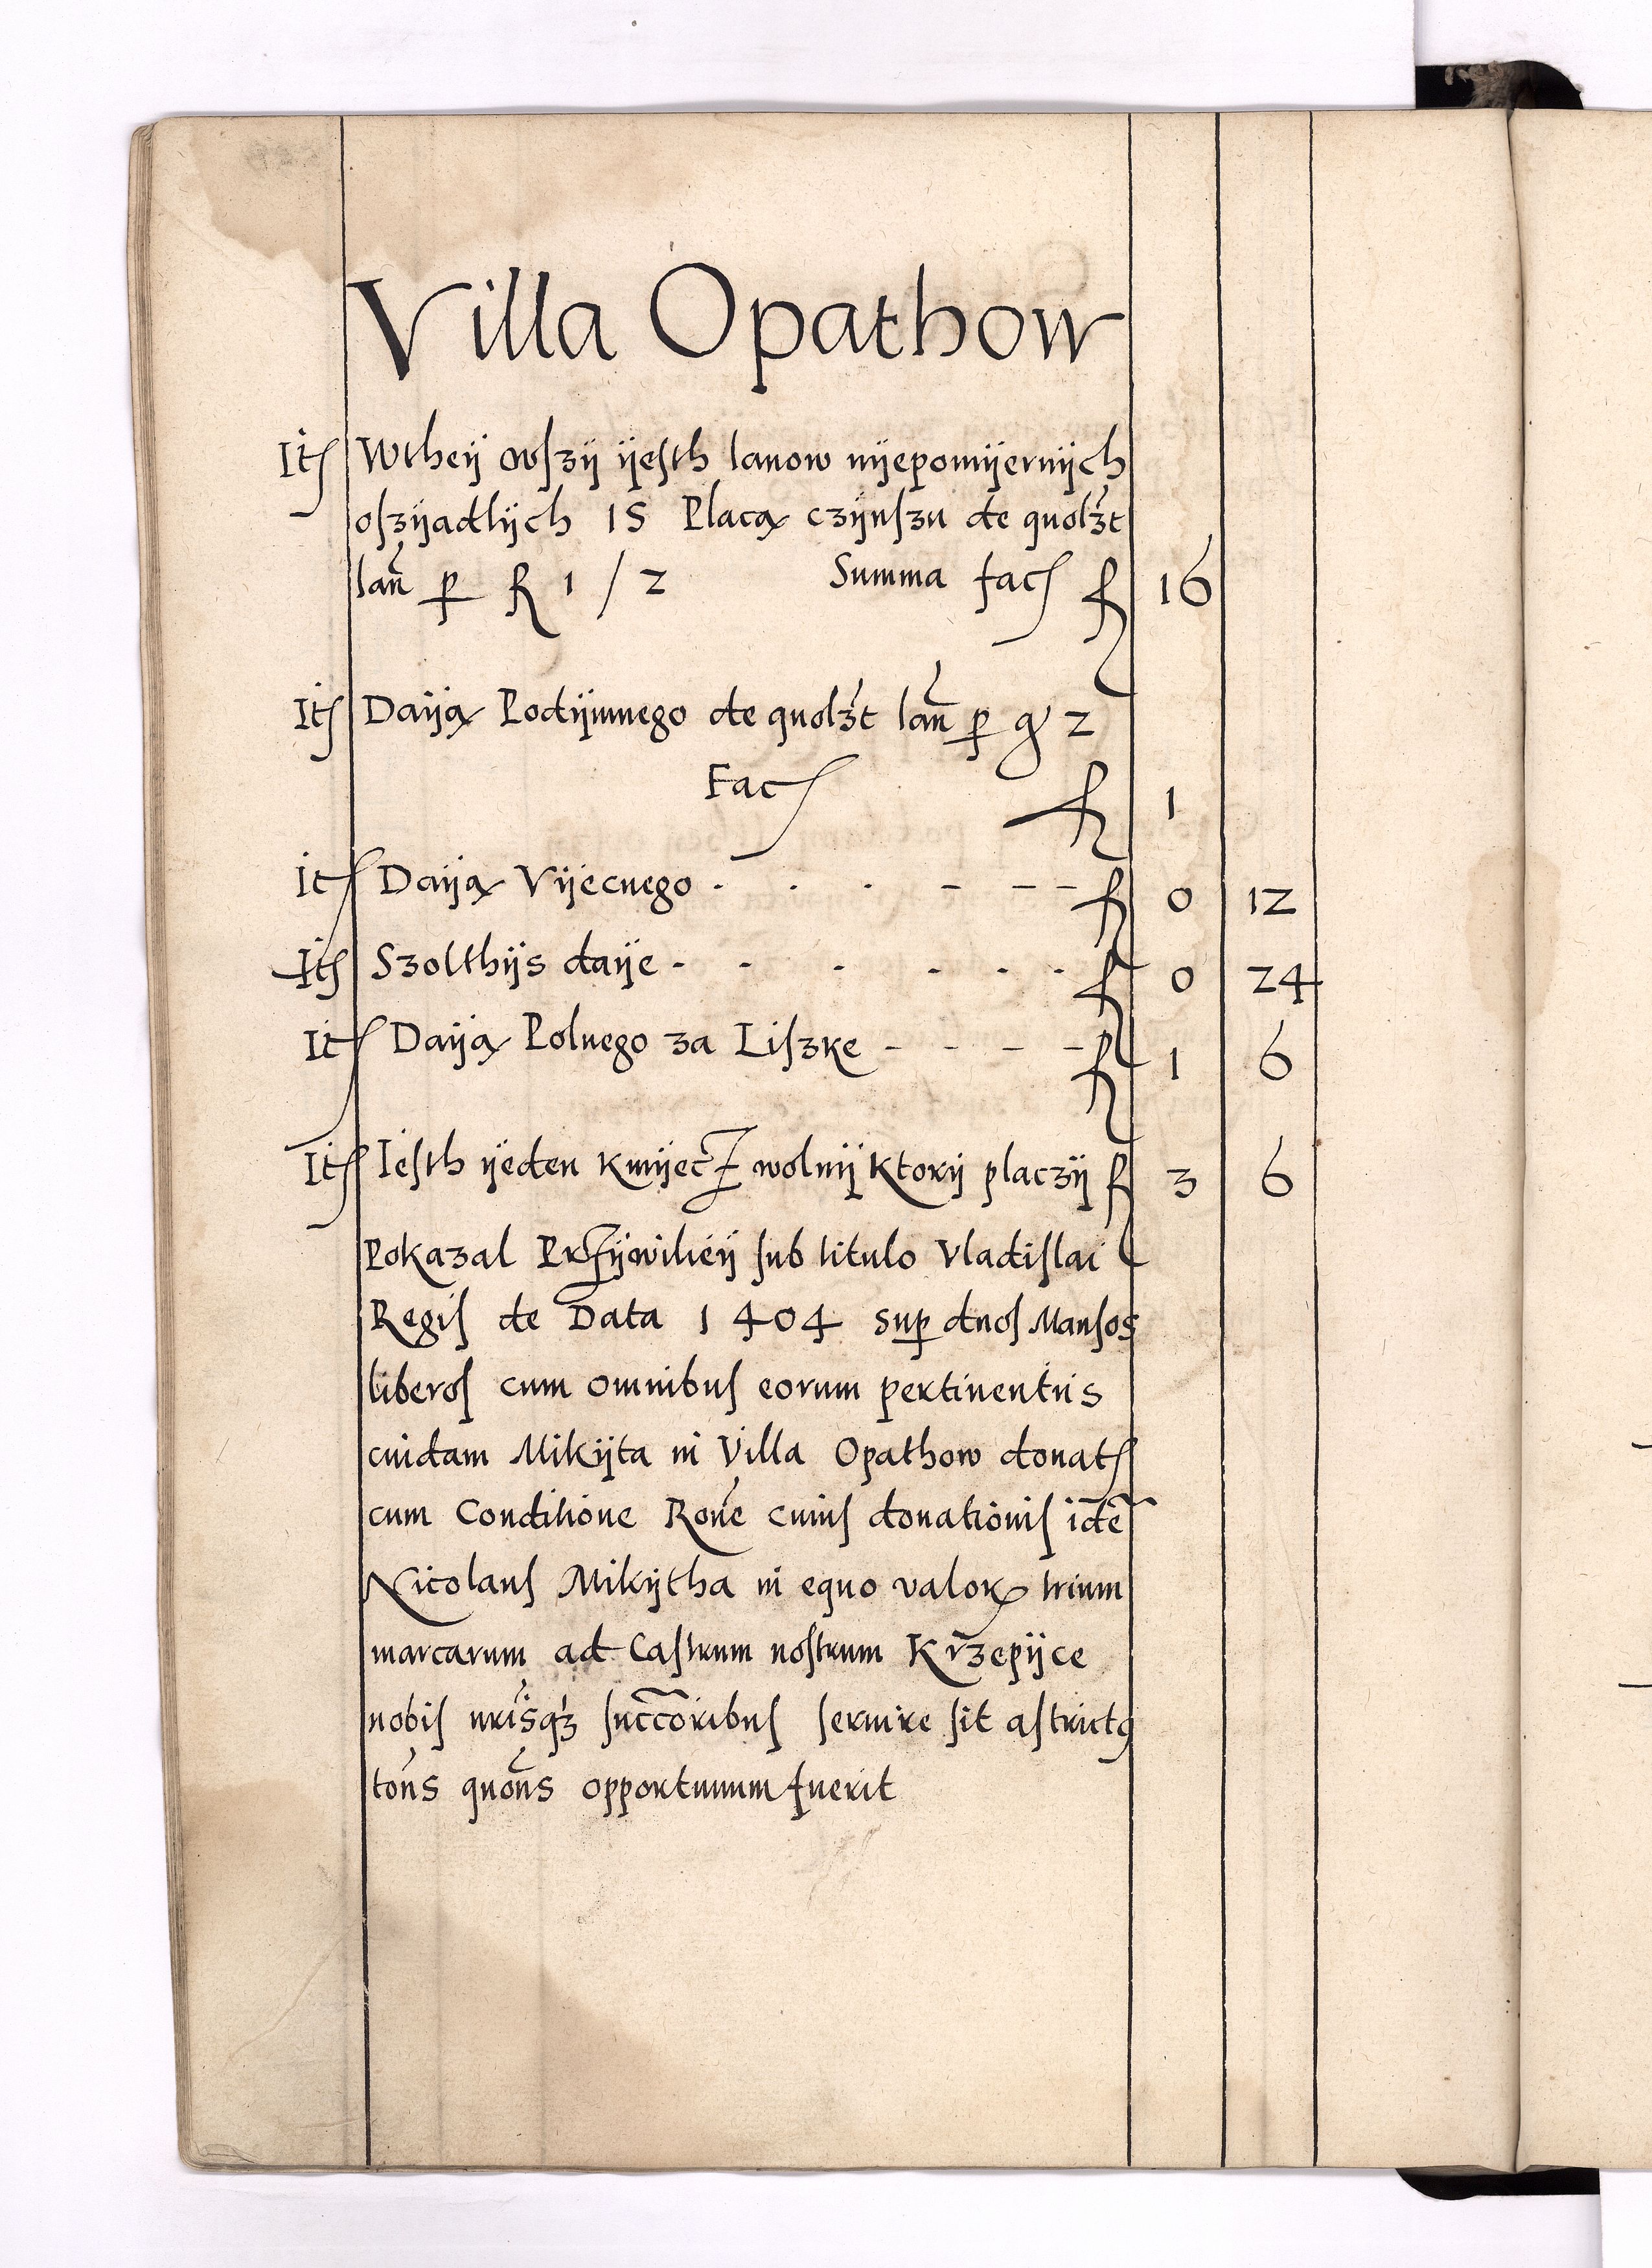 Villa Opathow
Itſ Wtheÿ wſzÿ ÿeſth lanow nÿepomÿernÿch
oſzÿadlÿch 15 Placą czÿnſzu de quolꝫt
lan̄ ꝑ fl 1 / 2 Summa facſ fl 16
Itſ Daÿą Podÿmnego de quolꝫt lan̄ ꝑ gͬ 2
Facſ fl 1
Itſ Daÿą Vÿecnego fl 0 12
Itſ Szolthÿs daÿe fl 0 24
Itſ Daÿą Polnego za Liszke fl 1 6
Itſ Ieſth ÿeden Kmÿecz wolnÿ Ktorÿ placzÿ fl 3 6
Pokazal Przÿwileÿ ſub titulo Vladiſlai
Regiſ de Data 1404 suꝑ duoſ Manſos
liberoſ cum omnibuſ eorum pertinentiis
cuidam Mikÿta in Villa Opathow donatſ
cum Conditione Rōne cuiuſ donationiſ idē
Nicolauſ Mikÿtha in equo valorꝭ trium
marcarum ad Caſtrum noſtrum Krzepÿce
nobiſ nr̄isqꝫ ſucc̄oribuſ ſeruire ſit aſtrictꝰ
tōns quōns opportunum fuerit